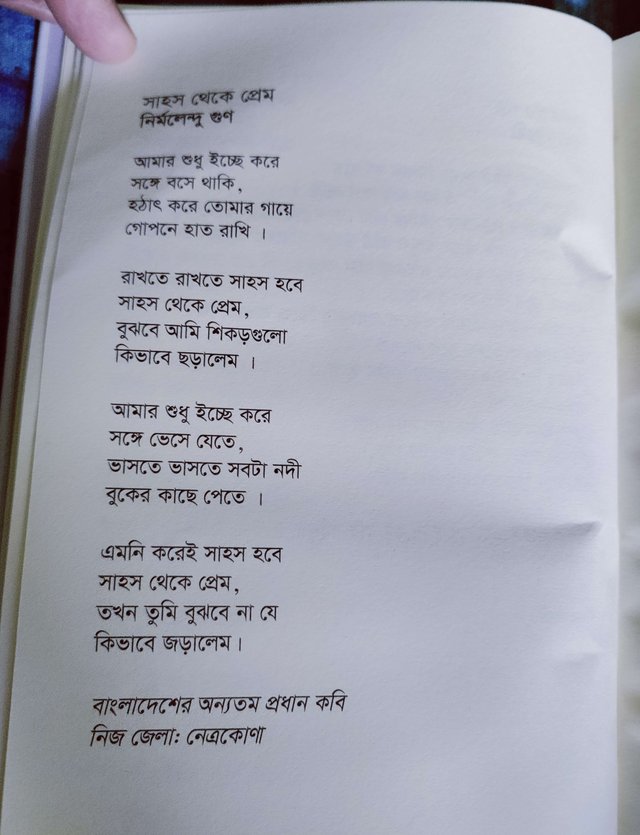 সাহস থেকে প্রেম
নির্মলেন্দু গুণ
আমার শুধু ইচ্ছে করে
সঙ্গে বসে থাকি,
হঠাৎ করে তোমার গায়ে
গোপনে হাত রাখি ।
রাখতে রাখতে সাহস হবে
সাহস থেকে প্রেম,
বুঝবে আমি শিকড়গুলো
কিভাবে ছড়ালেম ।
আমার শুধু ইচ্ছে করে
সঙ্গে ভেসে যেতে,
ভাসতে ভাসতে সবটা নদী
বুকের কাছে পেতে ।
এমনি করেই সাহস হবে
সাহস থেকে প্রেম,
তখন তুমি বুঝবে না যে
কিভাবে জড়ালেম।
বাংলাদেশের অন্যতম প্রধান কবি
নিজ জেলা: নেত্রকোণা